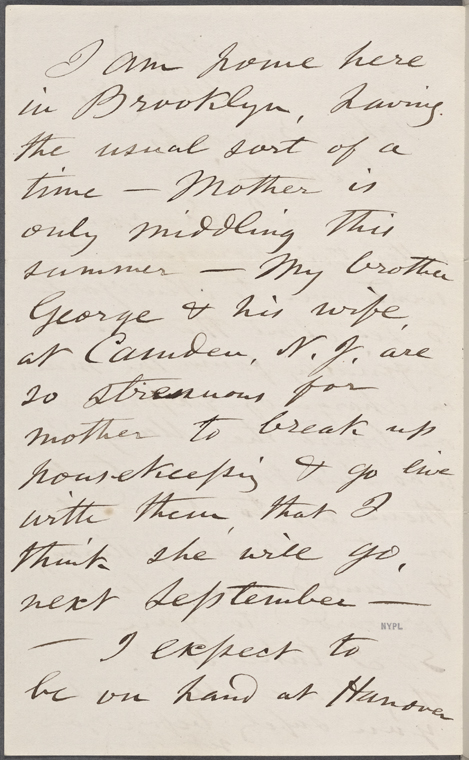 I am home here
in Brooklyn, having
the usual sort of a
time — Mother is
only middling this
summer — My brother
George & his wife
at Camden, N. J. are
so strenuous for
mother to break up
housekeeping & go live
with them, that I
think she will go,
next September —
— I expect to
be on hand at Hanover
NYPL